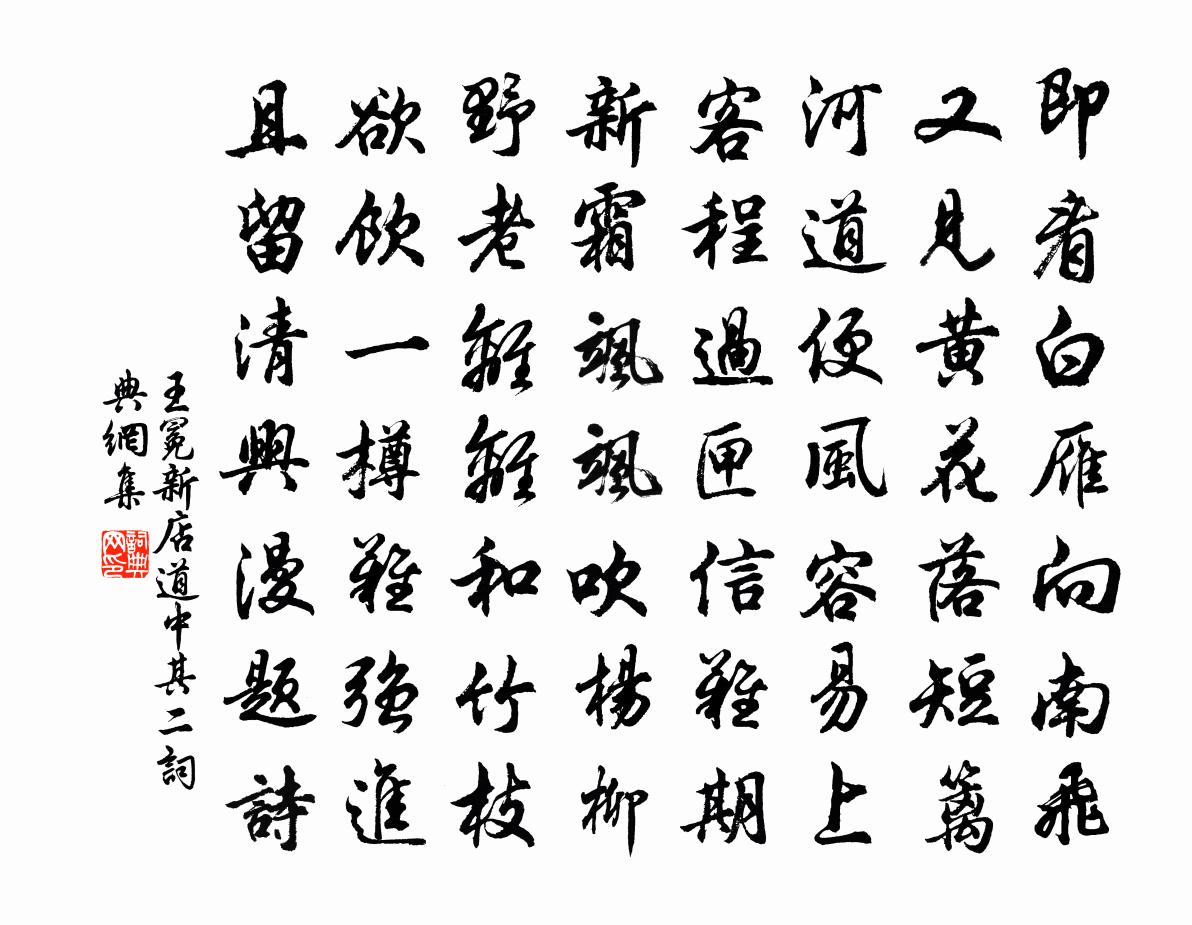 即看白雁向南飛
又見黄花落短籬
河道便風容易上
客程過匣信難期
新霜颯颯吹楊柳
野老離離和竹枝
欲飲一樽難強進
且留清興漫題詩
王冕新店道中其二詞
典網集
詞典
网印